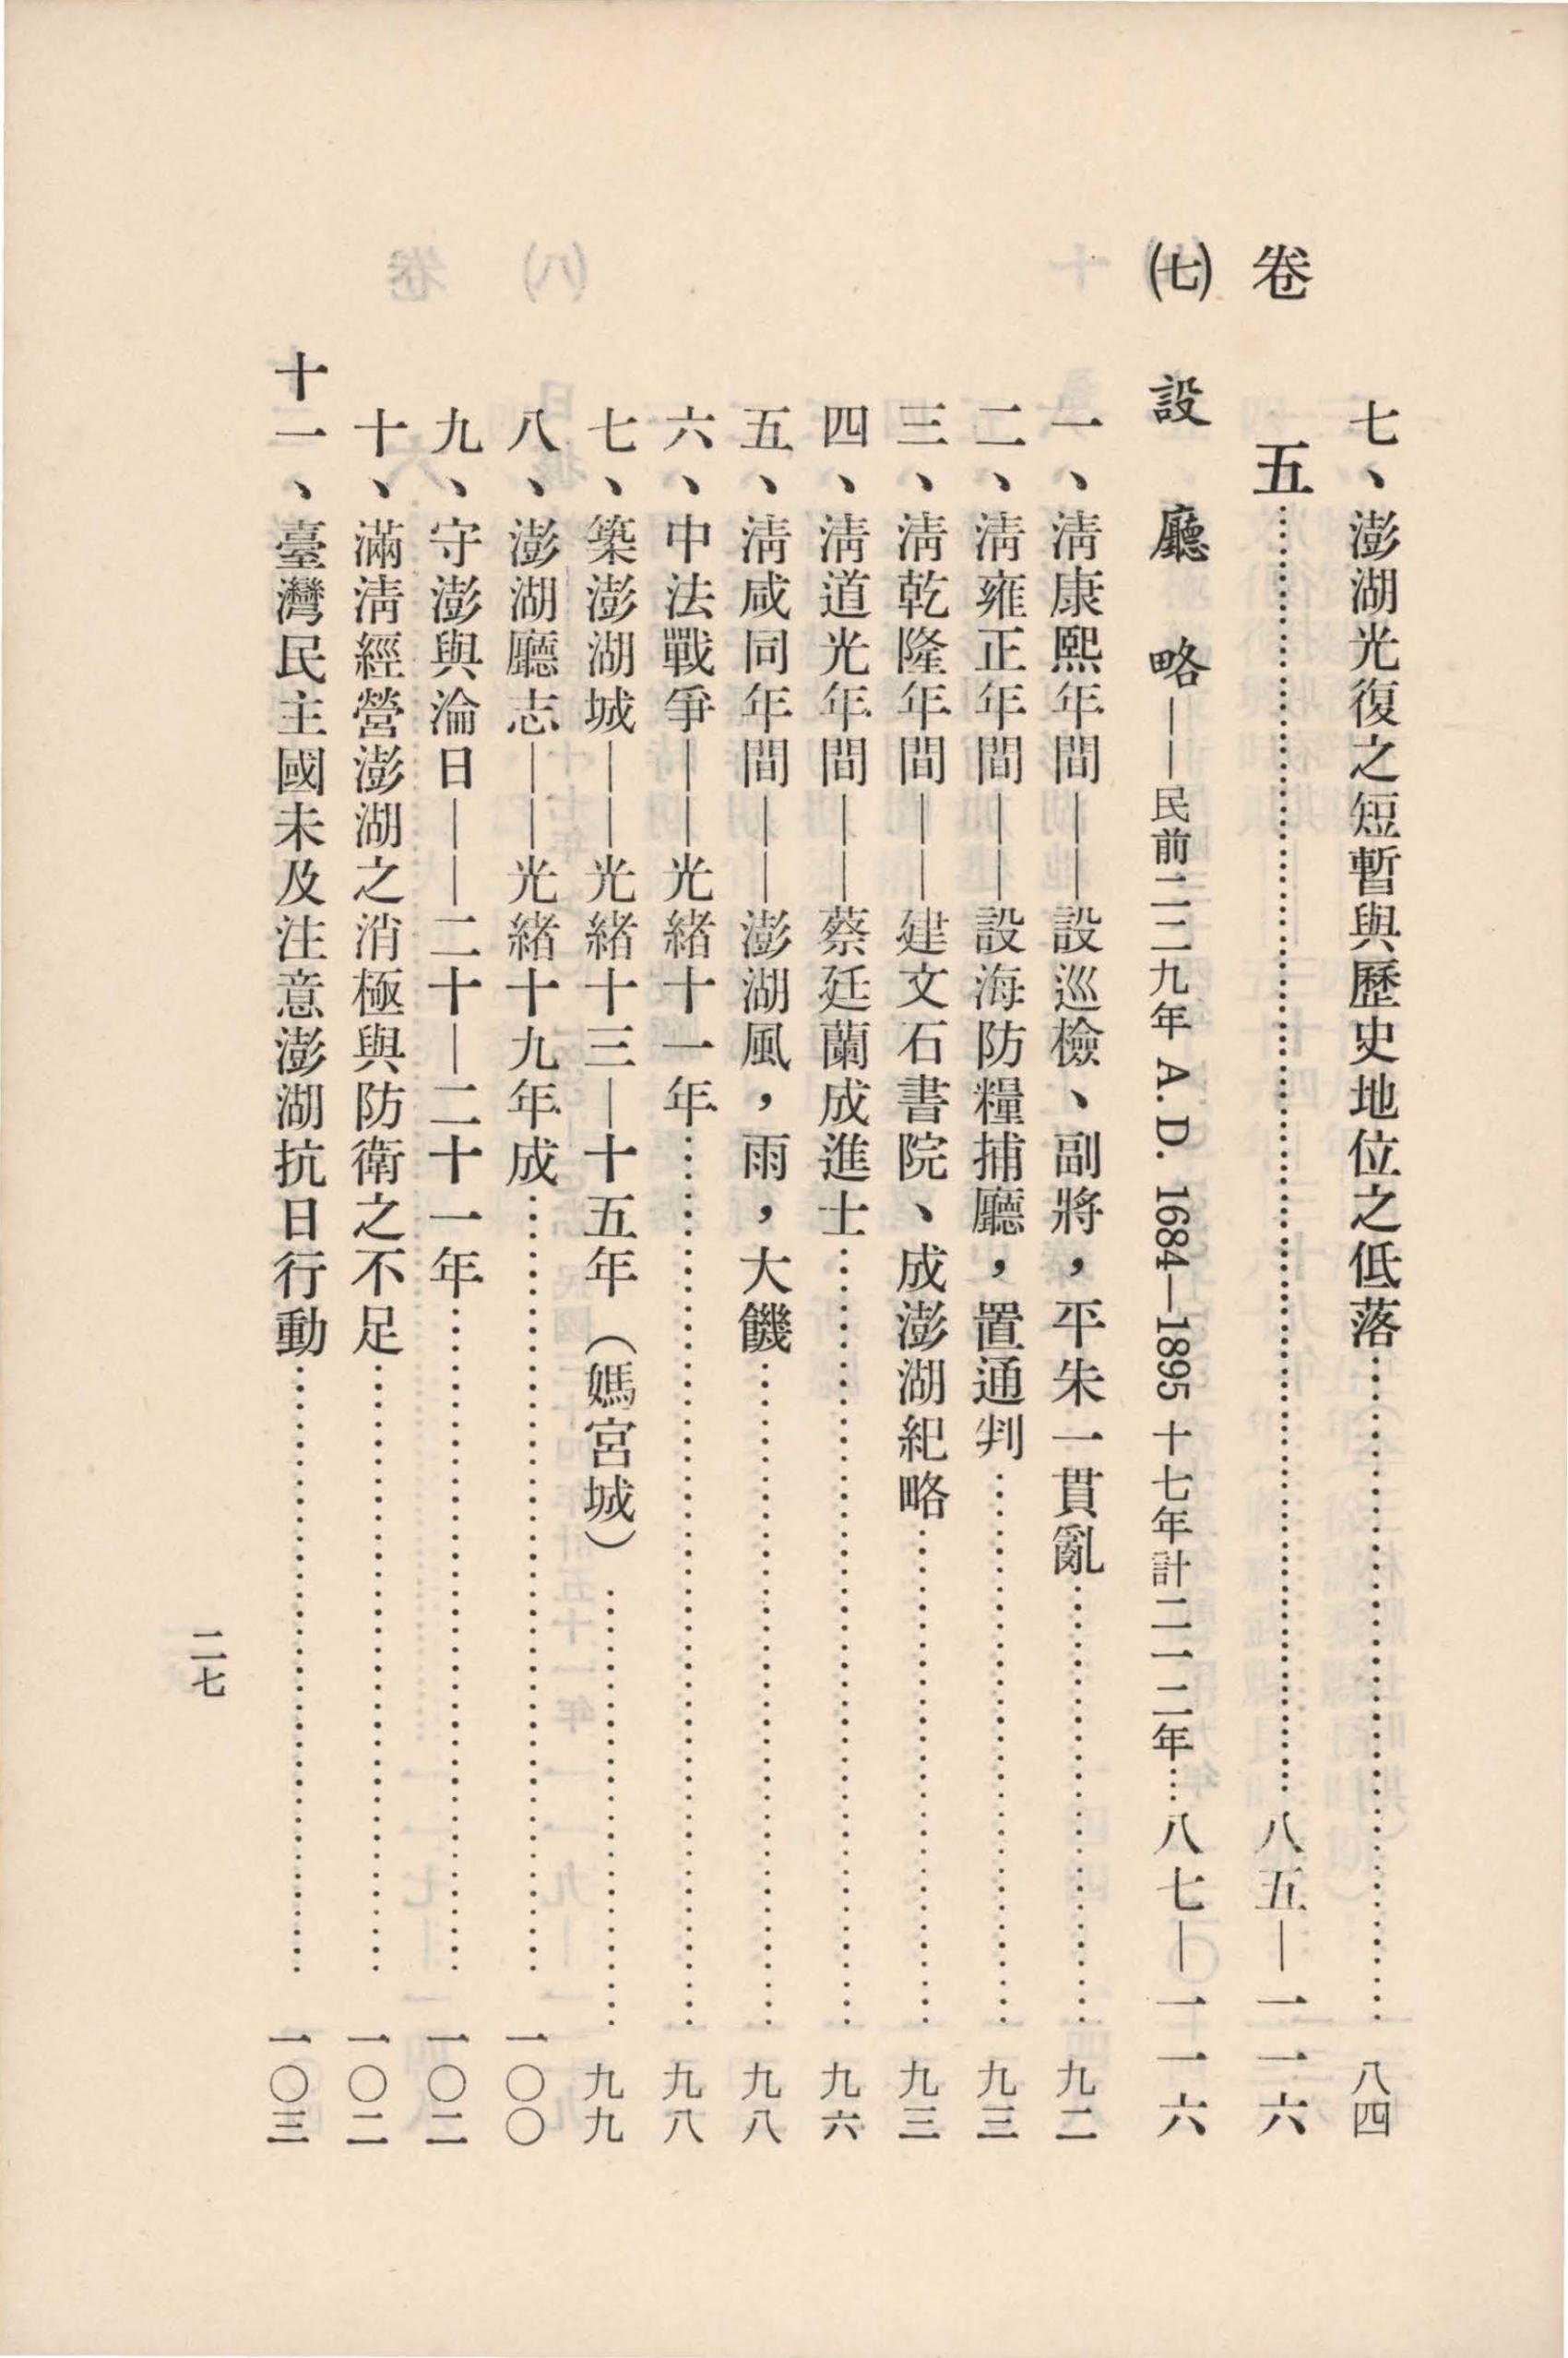 七、澎湖光復之短暫與歷史地位之低落……八四
卷　五……八五—一一六
㈦設廳略——民前二二九年 A. D. 1684—1895 十七年計二一二年…八七—一一六
一、淸康熙年間——設巡檢、副將，平朱一貫亂……九二
二、淸雍正年間——設海防糧捕廳，置通判……九三
三、淸乾隆年間——建文石書院、成澎湖紀略……九三
四、淸道光年間——蔡廷蘭成進士……九六
五、淸咸同年間——澎湖風，雨，大饑……九八
六、中法戰爭——光緒十一年……九八
七、築澎湖城——光緒十三—十五年（媽宮城）……九九
八、澎湖廳志——光緒十九年成……一〇〇
九、守澎與淪日——二十—二十一年……一〇二
十、滿淸經營澎湖之消極與防衛之不足……一〇二
十一、臺灣民主國未及注意澎湖抗日行動……一〇三
二七